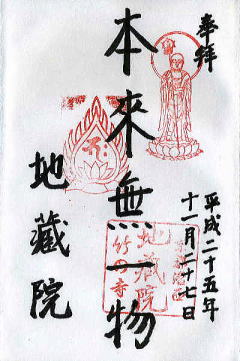 奉拝
平成二十五年
十一月二十七日
本來無一物
地藏院
地藏院
竹の寺